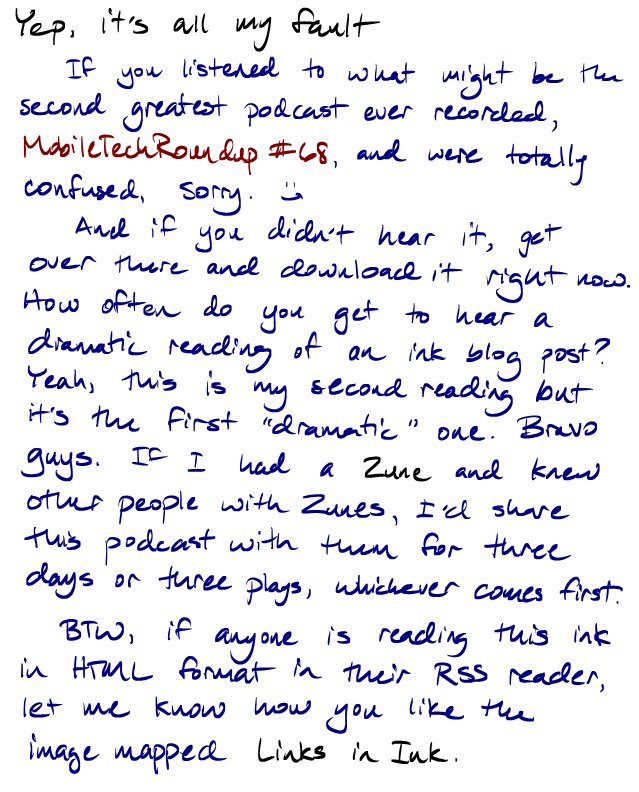 Yep, it's all my fault
If you listened to what might be the
second greatest podcast ever recorded,
MobileTechRoundup #68, and were totally
confused, sorry. :)
And if you didn't hear it, get
over there and download it right now.
How often do you get to hear a
dramatic reading of an ink blog post?
Yeah, this is my second reading but
it's the first "dramatic" one. Bravo
guys. If I had a Zune and knew
other people with Zunes, I'd share
this podcast with them for three
days or three plays, whichever comes first.
BTW, if anyone is reading this ink
in HTML format in their RSS reader,
let me know how you like the
image mapped Links in Ink.